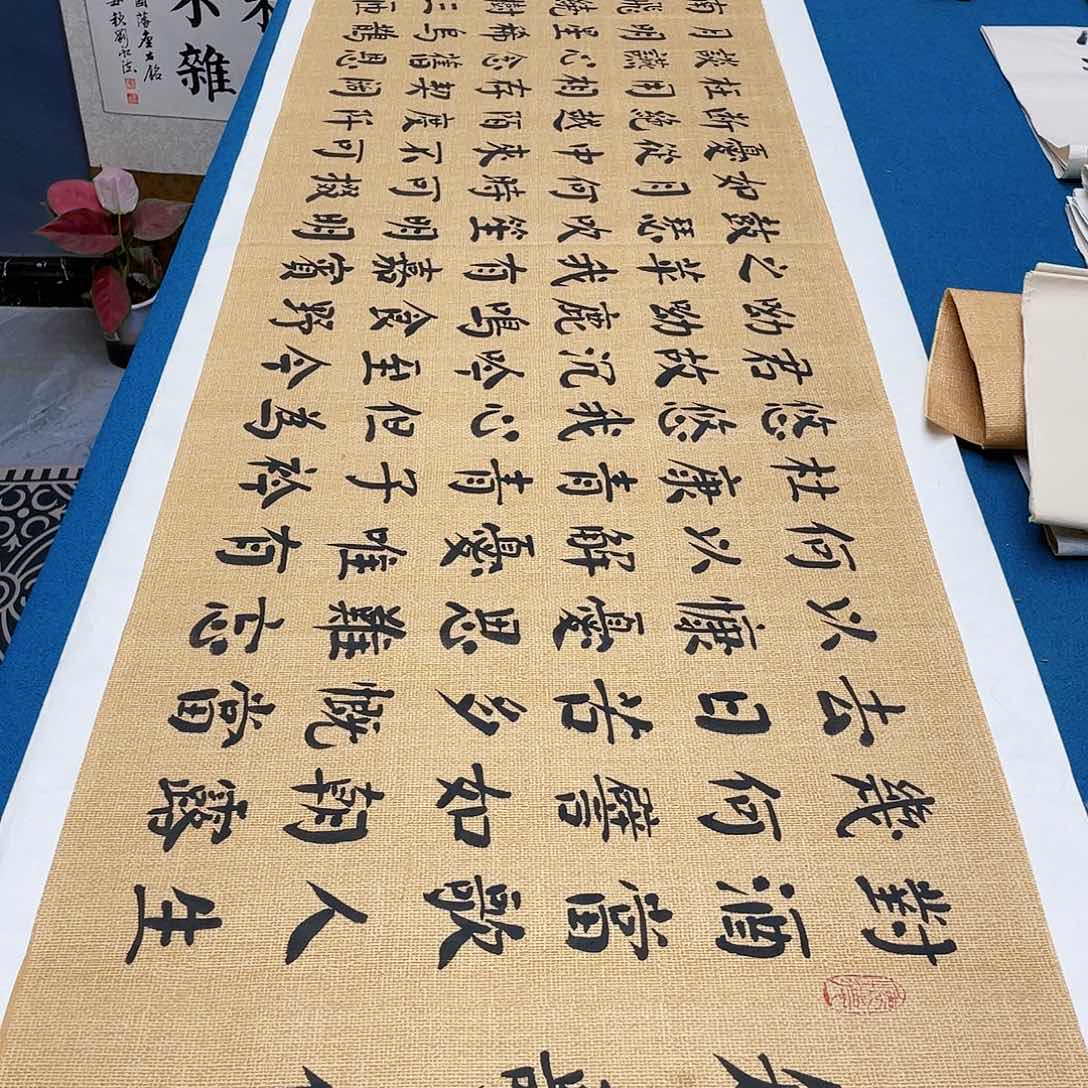 對酒當歌人生
幾何譬如朝露
去日苦多慨當
以慷憂思難忘
何以解憂唯有
杜康青青子衿
悠悠我心但為
君故沉吟至今
呦呦鹿鳴食野
之苹我有嘉賓
鼓瑟吹笙明明
如月何時可掇
憂從中來不可
斷絕越陌度阡
枉用相存契闊
談讌心念舊恩
月明星稀烏鵲
南飛繞樹三匝
不雜
藩座右銘